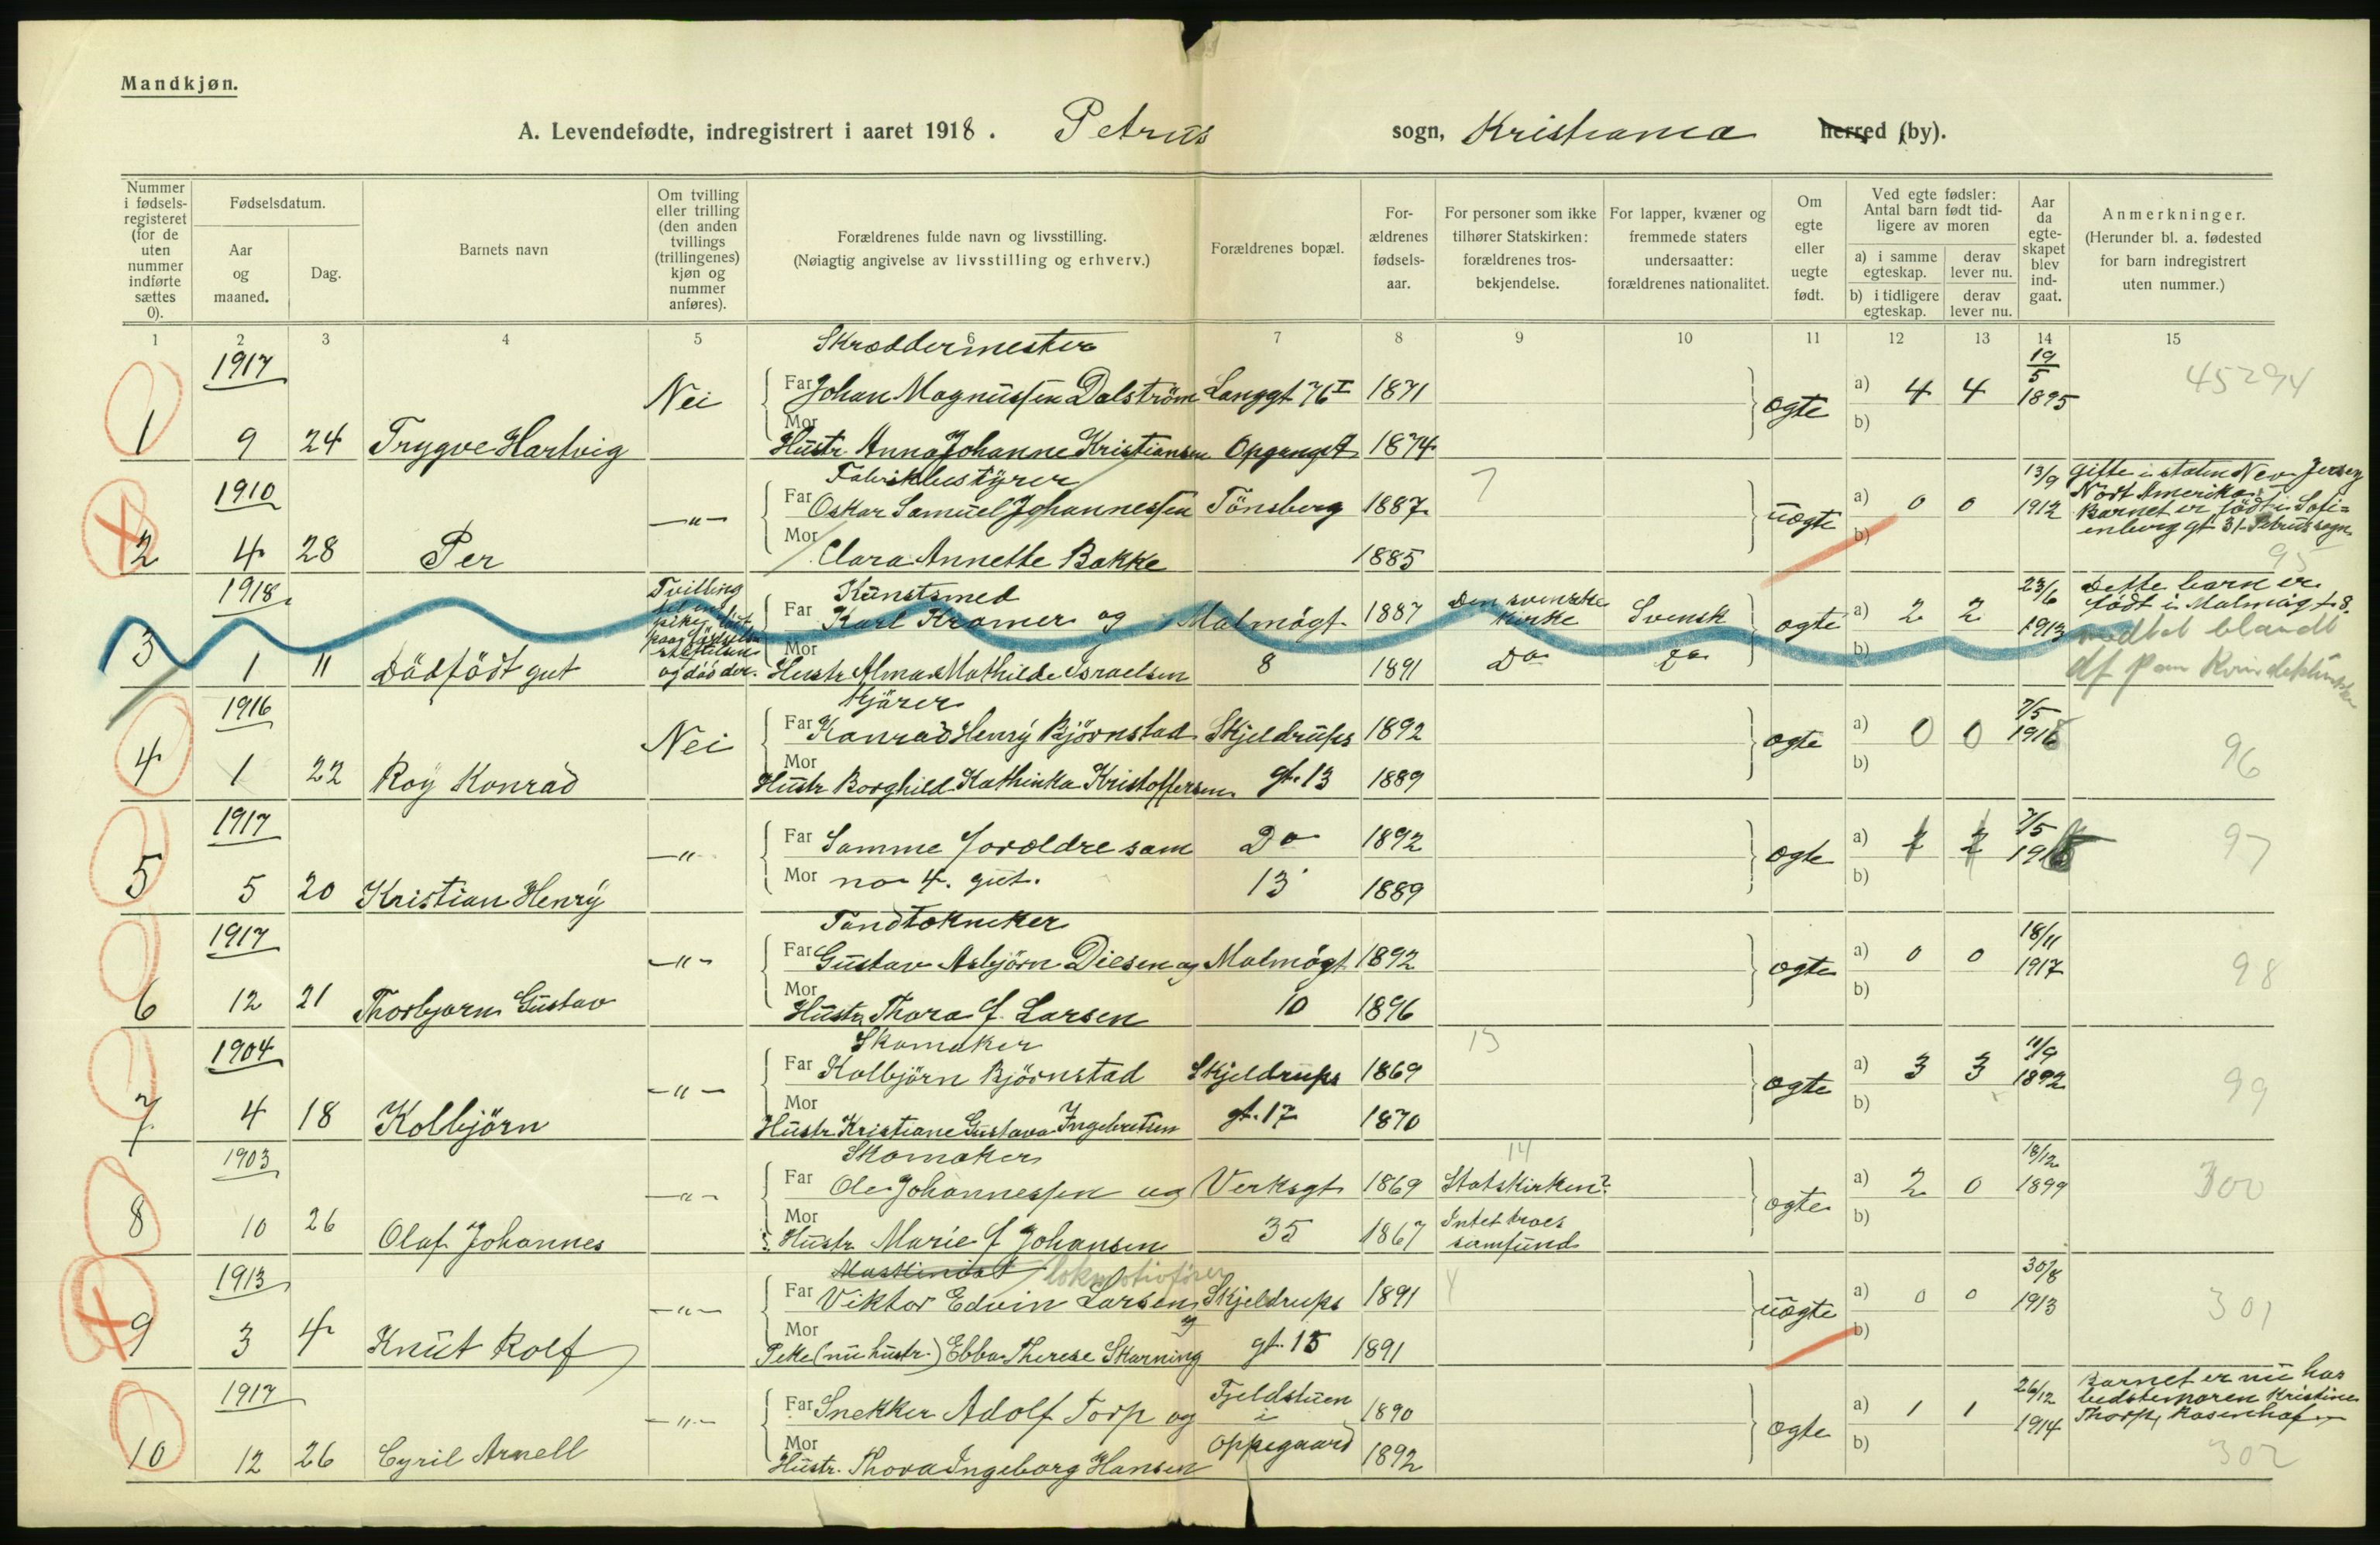 Mandkjøn.
A. Levendefødte, indregistrert i aaret 1918. Petrus sogn, Kristiania herred (by).
Nummer i fødsels-registeret (for de uten nummer indførte sættes 0).
Fødselsdatum.
Aar og maaned.
Dag.
Barnets navn
Om tvilling eller trilling (den anden tvillings (trillingenes) kjøn og nummer anføres).
Forældrenes fulde navn og livsstilling.
(Nøiagtig angivelse av livsstilling og erhverv.)
Forældrenes bopæl.
For-ældrenes fødsels-aar.
For personer som ikke tilhører Statskirken: forældrenes tros-bekjendelse.
For lapper, kvæner og fremmede staters undersaatter: forældrenes nationalitet.
Om egte eller uegte født.
Ved egte fødsler: Antal barn født tid-ligere av moren
a) i samme egteskap.
derav lever nu.
b) i tidligere egteskap.
derav lever nu.
Aar da egte-skapet blev ind-gaat.
Anmerkninger.
(Herunder bl. a. fødested for barn indregistrert uten nummer.)
1 2 3 4 5 6 7 8 9 10 11 12 13 14 15
1917 Skræddermester 19/5
Nei Far Johan Magnussen Dalström Langgt 76 I 1871 ægte a) 4 4 1895 45294
1 9 24 Trygve Hartvig Mor Hustr Anna Johanne Kristiansen Opgang A 1874 b)
1910 Fabrikbestyrer 7 13/9 gifte i staten New Jersey
—"— Far Oskar Samuel Johannessen Tönsberg 1887 uægte a) 0 0 1912 Nort Amerika
Barnet er födt i Sofi=
enberg gt 31 Petrus sogn
2 4 28 Per Mor Clara Annette Bakke 1885 b) 95
1918 Tvilling Kunstsmed 23/6 Dette barn er
Far Karl Kramer og Malmögt 1887 Den svenske kirke Svensk ægte a) 2 2 1913 födt i Malmögt 8.
3 1 11 Dödfödt gut Mor Hustr Alma Mathilde Israelsen 8 1891 Do Do b)
1916 Kjörer 7/5
Nei Far Konrad Henry Björnstad Skjeldrups 1892 ægte a) 0 0 1916
4 1 22 Roy Konrad Mor Hustr Borghild Kathinka Kristoffersen gt. 13 1889 b) 96
1917 7/5
—"— Far Samme forældre som Do 1892 ægte a)
5 5 20 Kristian Henry Mor no 4. gut. 13 1889 b) 97
1917 Tandtekniker 18/11
—"— Far Gustav Asbjörn Diesen og Malmögt 1892 ægte a) 0 0 1917
6 12 21 Thorbjorn Gustav Mor Hustr Thora f. Larsen 10 1896 b) 98
1904 Skomaker 13 11/9
—"— Far Kolbjörn Björnstad Skjeldrups 1869 ægte a) 3 3 1892
7 4 18 Kolbjörn Mor Hustr Kristiane Gustava Ingebretsen gt. 17 1870 b) 99
1903 Skomaker 14 18/12
—"— Far Ole Johannessen og Verksgt 1869 Statskirken? ægte a) 2 0 1899 300
8 10 26 Olaf Johannes Mor Hustr Marie f Johansen 35 1867 Intet troes samfund b)
1913 Maskinist lokomotivfører 30/8
—"— Far Viktor Edvin Larsen Skjeldrups 1891 4 uægte a) 0 0 1913
9 3 4 Knut Rolf Mor Pike (nu hustr.) Ebba Therese Skarning gt. 15 1891 b) 301
1917 26/12 Barnet er nu hos
—"— Far Snekker Adolf Torp og Fjeldstuen i 1890 ægte a) 1 1 1914 bedstemoren Kristine
Thorp, Rosenhof
10 12 26 Cyril Arnell Mor Hustr. Thora Ingeborg Hansen Oppegaard 1892 b) 302